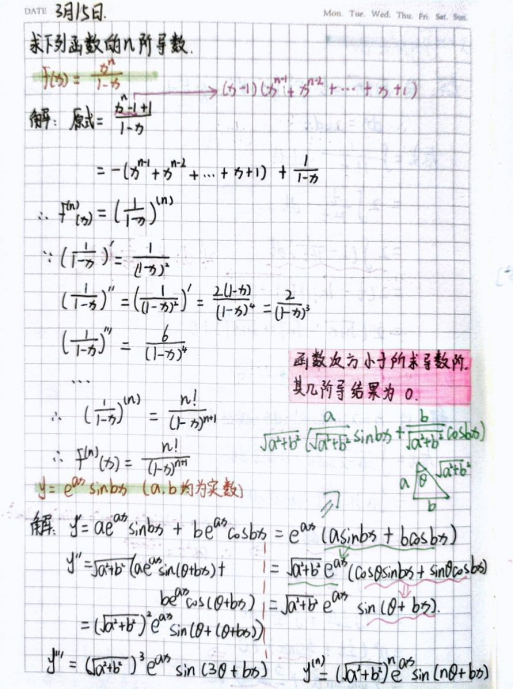 DATE 3月15日.
Mon. Tue. Wed. Thu. Fri. Sat. Sun.
求下列函数的n阶导数.
f(x) = x^n/(1-x)
→(x-1)(x^{n-1}+x^{n-2}+…+x+1)
解: 原式 = (x^n-1+1)/(1-x)
= -(x^{n-1}+x^{n-2}+…+x+1) + 1/(1-x)
∴ f^{(n)}(x) = (1/(1-x))^{(n)}
∵ (1/(1-x))' = 1/(1-x)²
(1/(1-x))'' = (1/(1-x)²)' = 2(1-x)/(1-x)⁴ = 2/(1-x)³
(1/(1-x))''' = 6/(1-x)⁴
…
∴ (1/(1-x))^{(n)} = n!/(1-x)^{n+1}
∴ f^{(n)}(x) = n!/(1-x)^{n+1}
函数次方小于所求导数阶.
其几阶导结果为 0.
√(a²+b²) (a/√(a²+b²) sinbx + b/√(a²+b²) cosbx)
a θ √(a²+b²)
b
y = e^{ax} sinbx (a.b均为实数)
解: y' = ae^{ax}sinbx + be^{ax}cosbx = e^{ax}(asinbx + bcosbx)
= √(a²+b²) e^{ax} (cosθsinbx + sinθcosbx)
= √(a²+b²) e^{ax} sin(θ+bx).
y'' = √(a²+b²) (ae^{ax}sin(θ+bx) +
be^{ax}cos(θ+bx))
= (√(a²+b²))² e^{ax} sin(θ+(θ+bx))
y''' = (√(a²+b²))³ e^{ax} sin(3θ+bx)
y^{(n)} = (√(a²+b²))^n e^{ax} sin(nθ+bx)